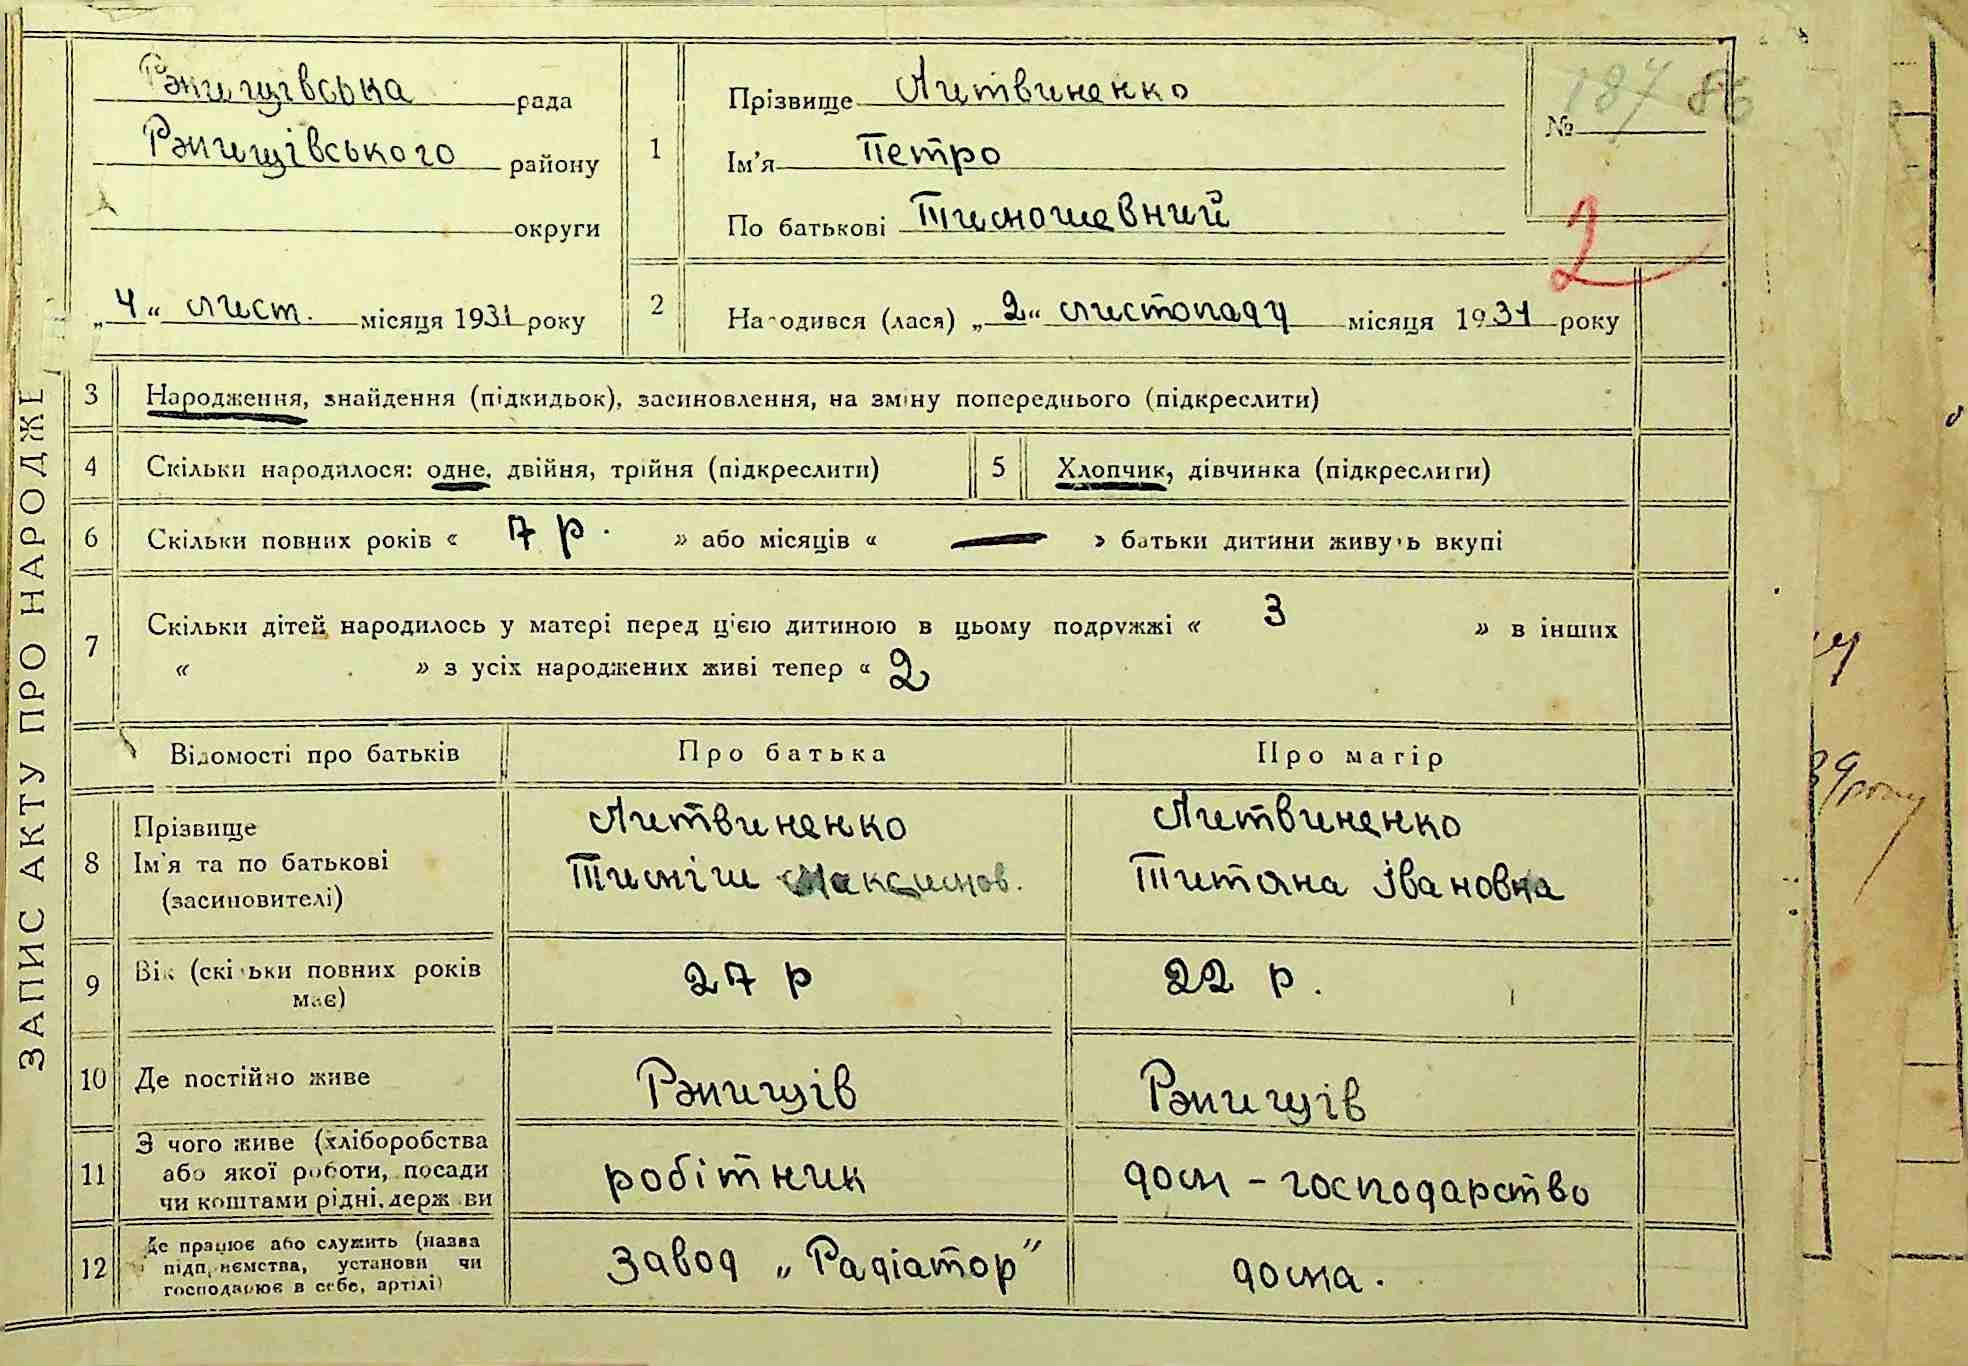 ЗАПИС АКТУ ПРО НАРОДЖЕ
Рэжищівська рада
Рэжищівського району
округи
„4“ лист. місяця 1931 року
1
Прізвище Литвиненко
Ім'я Петро
По батькові Тимошевний
№ 187 86
2
2
Народився (лася) „2“ листопаду місяця 1931 року
3 Народження, знайдення (підкидьок), засиновлення, на зміну попереднього (підкреслити)
4 Скільки народилося: одне, двійня, трійня (підкреслити)
5 Хлопчик, дівчинка (підкреслити)
6 Скільки повних років « 7 р. » або місяців « — » батьки дитини живуть вкупі
7 Скільки дітей народилось у матері перед ц'єю дитиною в цьому подружжі « 3 » в інших
« » з усіх народжених живі тепер « 2
Відомості про батьків Про батька Про матір
8 Прізвище
Ім'я та по батькові
(засиновителі)
Литвиненко
Тиміш Максимов.
Литвиненко
Титяна Івановна
9 Вік (скільки повних років
має)
27 р
22 р.
10 Де постійно живе Рэжищів Рэжищів
11 З чого живе (хліборобства
або якої роботи, посади
чи коштами рідні, держави
робітник
дом – господарство
12 Де працює або служить (назва
підприємства, установи чи
господарює в себе, артілі)
Завод „Радіатор”
дома.